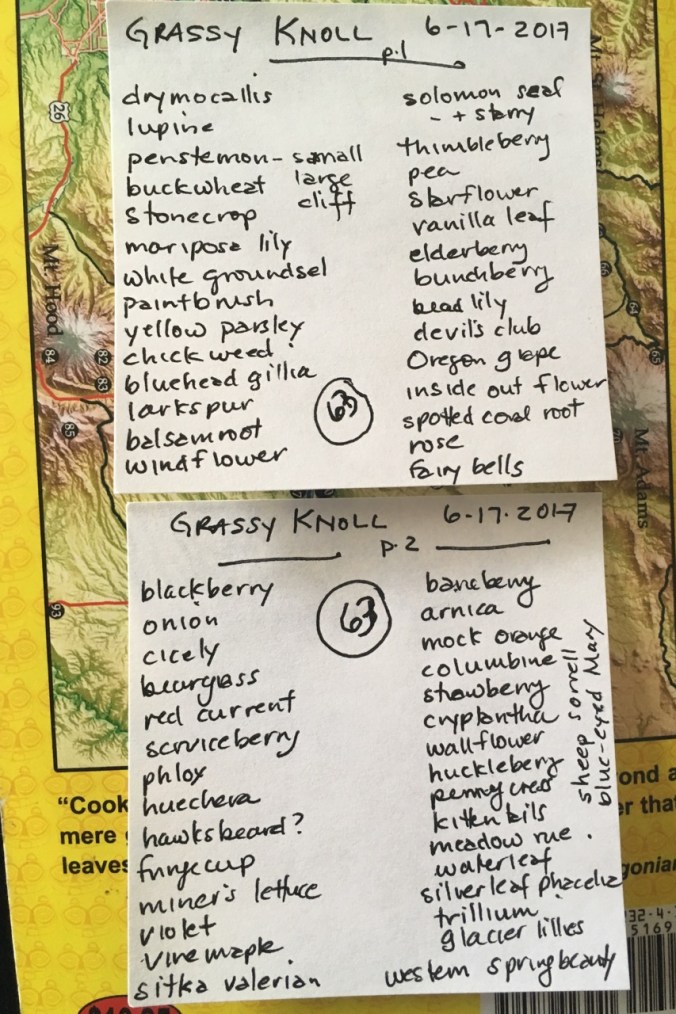 GRASSY KNOLL 6-17-2017
p.1
drymocallis
lupine
penstemon - small
large
cliff
buckwheat
stonecrop
mariposa lily
white groundsel
paintbrush
yellow parsley
chickweed
bluehead gillia
larkspur
balsamroot
windflower
63
solomon seal
- + starry
thimbleberry
pea
starflower
vanilla leaf
elderberry
bunchberry
bead lily
devil's club
Oregon grape
inside out flower
spotted coral root
rose
fairy bells
GRASSY KNOLL 6-17-2017
p.2
blackberry
onion
cicely
beargrass
red current
serviceberry
phlox
huechera
hawksbeard?
fringecup
miner's lettuce
violet
vine maple
sitka valerian
63
baneberry
arnica
mock orange
columbine
strawberry
cryptantha
wallflower
huckleberry
pennycress
kittentails
meadow rue
waterleaf
silverleaf phacelia
trillium
glacier lilies
western springbeauty
sheep sorrell
blue-eyed Mary
26
Mt. Hood
84
82
83
85
93
Mt. Adams
64
65
"Cook
mere
leaves
ond a
er tha
gonia
32-4
5169